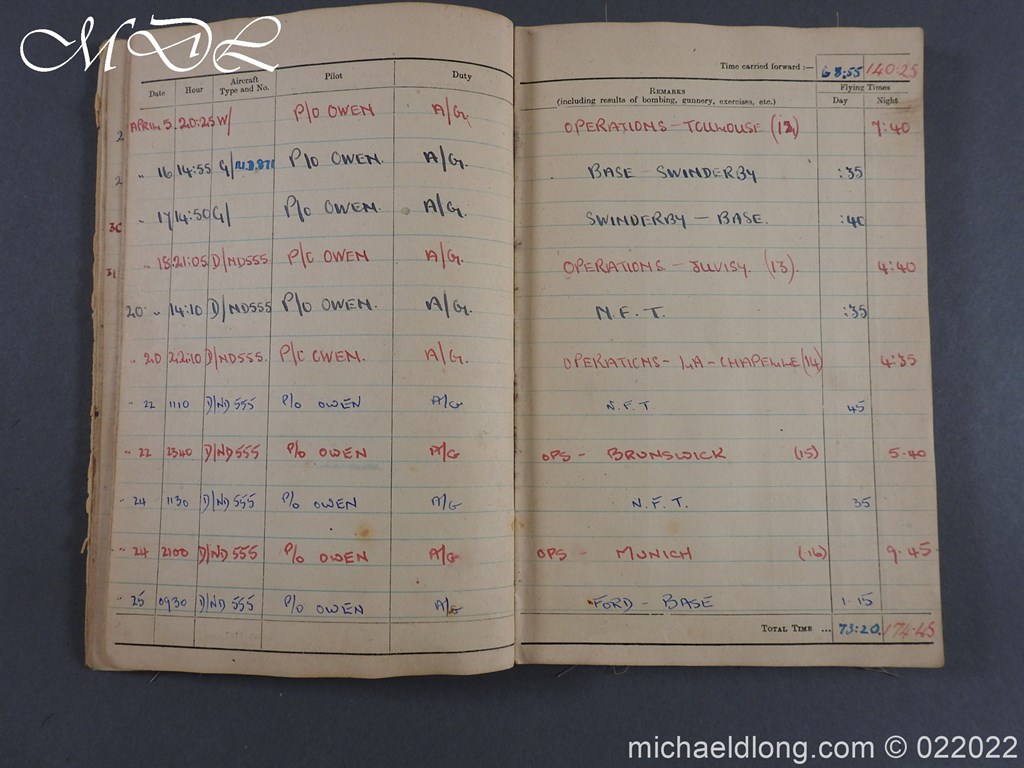 MDL
Time carried forward :— 68:55 140.25
Date Hour Aircraft Type and No. Pilot Duty REMARKS (including results of bombing, gunnery, exercises, etc.) Flying Times Day Night
APRIL 5. 20:25 W/ P/O OWEN A/G. OPERATIONS - TOULOUSE (12) 7:40
2
" 16 14:55 G/ P/O OWEN. A/G. BASE SWINDERBY :35
2
" 17 14:50 G/ P/O OWEN. A/G. SWINDERBY - BASE. :40
30
" 18 21:05 D/ND555 P/O OWEN A/G. OPERATIONS - JUVISY. (13). 4:40
31
20 " 14:10 D/ND555 P/O OWEN. A/G. N.F.T. :35
" 20 22:10 D/ND555. P/O OWEN. A/G. OPERATIONS - LA-CHAPELLE (14) 4:35
" 22 1110 D/ND555 P/O OWEN A/G N.F.T 45
" 22 2340 D/ND555 P/O OWEN A/G OPS - BRUNSWICK (15) 5.40
" 24 1130 D/ND555 P/O OWEN A/G N.F.T. 35
" 24 2100 D/ND555 P/O OWEN A/G OPS - MUNICH (16) 9.45.
" 25 0930 D/ND555 P/O OWEN A/G FORD - BASE 1.15
TOTAL TIME ... 73:20. 174.45
michaeldlong.com © 022022